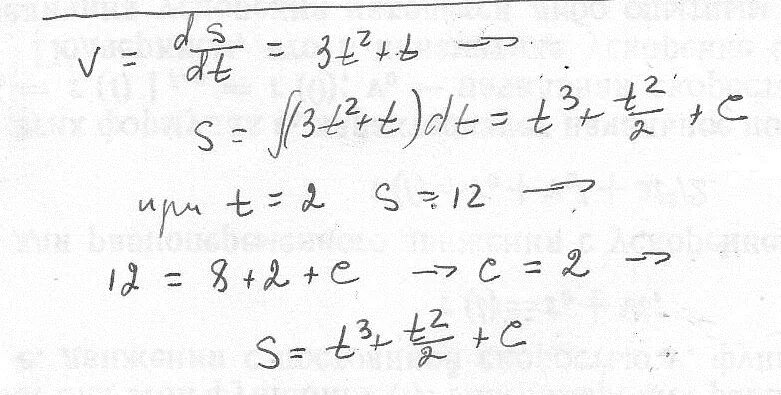 v = ds/dt = 3t² + t →
S = ∫(3t² + t)dt = t³ + t²/2 + C
при t = 2 S = 12 →
12 = 8 + 2 + C → C = 2 →
S = t³ + t²/2 + C